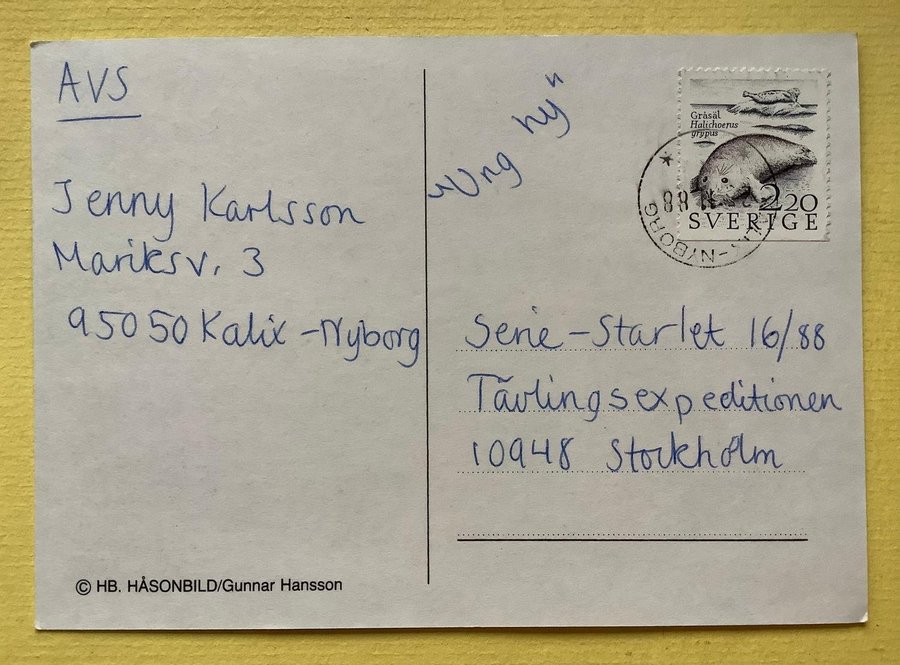 AVS
Jenny Karlsson
Mariksv. 3
95050 Kalix-Nyborg
© HB. HÅSONBILD/Gunnar Hansson
"Ung ny"
Gråsäl
Halichoerus
grypus
2.20
SVERIGE
88
-NYBORG
Serie-Starlet 16/88
Tävlingsexpeditionen
10948 Stockholm